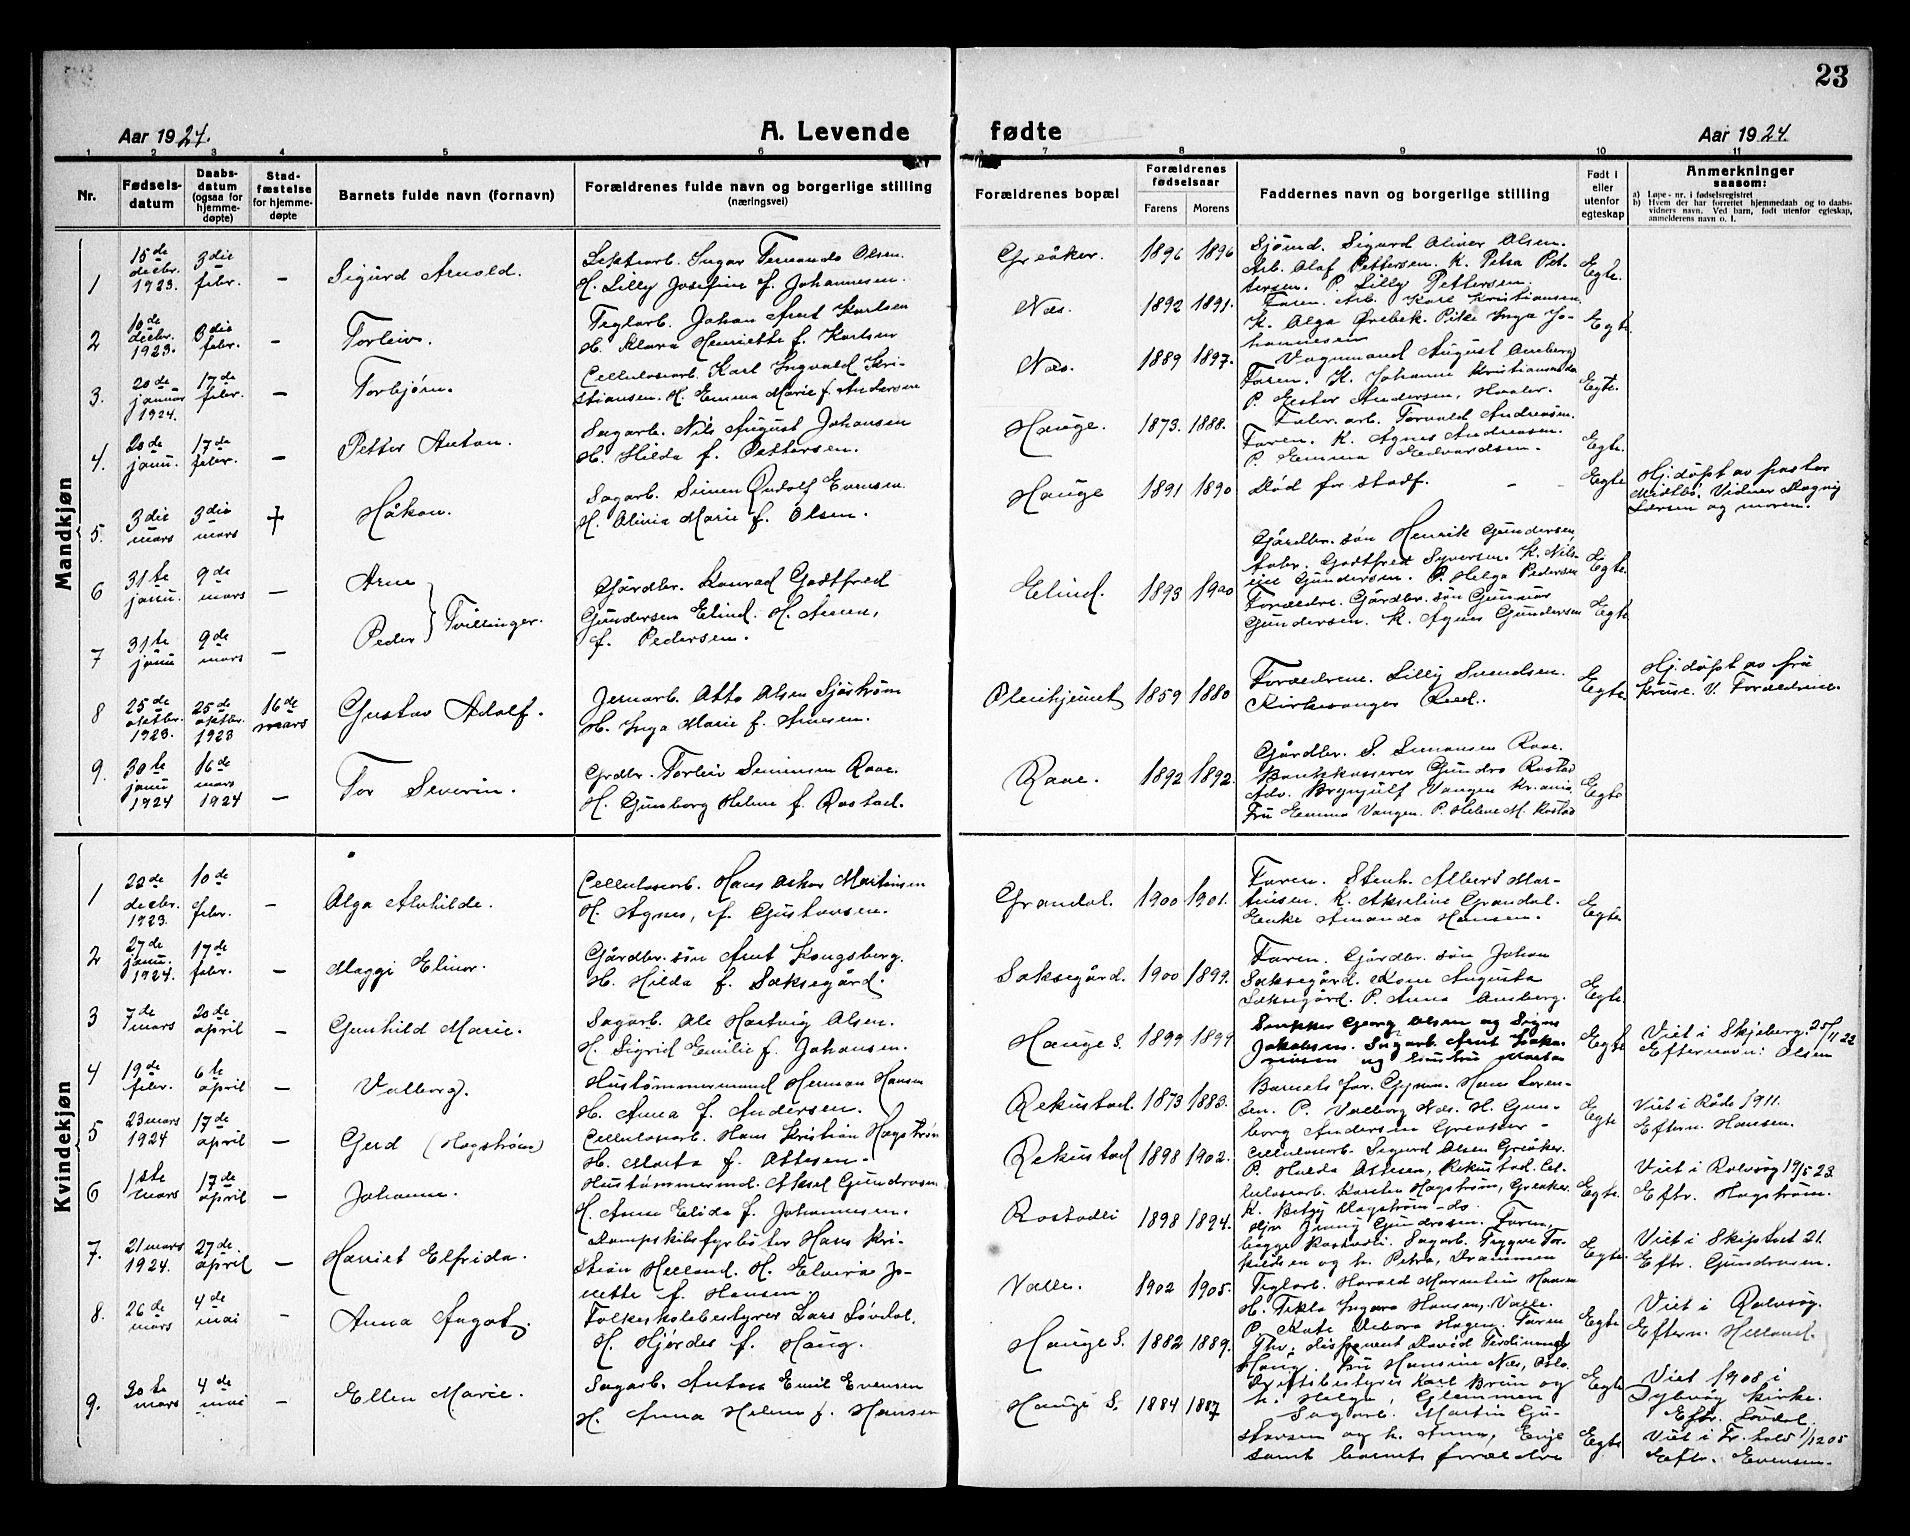 23
Aar 1924.
A. Levende fødte
Aar 1924.
1 2 3 4 5 6 7 8 9 10 11
Nr.
Fødsels-
datum
Daabs-
datum
(ogsaa for
hjemme-
døpte)
Stad-
fæstelse
for hjemme-
døpte
Barnets fulde navn (fornavn)
Forældrenes fulde navn og borgerlige stilling
(næringsvei)
Forældrenes bopæl
Forældrenes
fødselsaar
Farens Morens
Faddernes navn og borgerlige stilling
Født i
eller
utenfor
egteskap
Anmerkninger
saasom:
a) Løpe-nr. i fødselsregistret
b) Hvem der har forrettet hjemmedaab og to daabs-
vidners navn. Ved barn, født utenfor egteskap,
anmelderens navn o. l.
Mandkjøn
1 15de decbr. 1923. 3die febr. – Sigurd Arnold.
Fernando Olsen.
H. Lilly Josefine f. Johannesen.
Greåker. 1896 1896
Sjømd. Sigurd Oliver Olsen.
Arb. Olaf Pettersen. K. Petra Pet-
tersen. P. Lilly Pettersen.
Egte.
2 10de decbr. 1923. 3die febr. – Torleiv.
Teglarb. Johan Arnt Karlsen
H. Klara Henriette f. Karlsen
Næs. 1892 1891.
Faren. Arb. Karl Kristiansen,
K. Olga Ørebek. Pike Inga Jo-
hannesen
Egte.
3. 20de januar 1924. 17de febr. – Torbjørn.
Cellulosearb. Karl Ingvald Kri-
stiansen. H. Emma Marie f. Andersen
Næs. 1889 1897.
Vognmand August Amberg
Faren. K. Johanne Kristiansen
P. Ester Andersen, Hvaler.
Egte.
4. 20de janu. 17de febr. – Petter Anton.
Sagarb. Nils August Johansen
H. Hilda f. Pettersen.
Hauge. 1873. 1888.
Fabr. arb. Torvald Andresen.
Faren. K. Agnes Andresen.
P. Emma Edvardsen.
Egte.
5. 3die mars 3die mars + Håkon.
Sagarb. Simen Rudolf Evensen
H. Olivia Marie f. Olsen.
Hauge 1891 1890
Død før stadf. – –
Egte.
Hj. døpt av pastor
Midtbö. Vidner Magny
Larsen og moren.
6 31te janu. 9de mars – Arne
7 31te janu 9de mars – Peder
} Tvillinger.
Gårdbr. Konrad Godtfred
Gundersen Elind. H. Anna,
f. Pedersen.
Elind. 1893 1900
Gårdbr. søn Henrik Gundersen,
Fabr. Godtfred Syversen. K. Nil-
sine Gundersen. P. Helga Pedersen
Forældre. Gårdbr. søn Gunnar
Gundersen. K. Agnes Gundersen
Egte.
Egte.
8 25de oktbr. 1923. 25de oktbr. 1923 16de mars Gustav Adolf.
Jernarb. Otto Olsen Sjøstrøm
H. Inga Marie f. Arnesen.
1859 1880
Forældrene. Lilly Svendsen.
Kirkesanger Rød.
Egte.
Hj. døpt av fru
Kruse. V. Forældrene.
9. 30te janu 1924 16de mars 1924 – Tor Severin.
Grdbr. Torleiv Simensen Raae.
H. Gunborg Helene f. Rostad.
Raae. 1892 1892.
Gårdbr. S. Simonsen Raae.
Bankkasserer Gundro Rostad
Adv. Brynjulf Vangen Kr.ania
Fru Emma Vangen. P. Helene M. Rostad
Egte
Kvindekjøn
1 22de decbr. 1923. 10de febr. – Olga Alvhilde.
Cellulosearb. Hans Oskar Martinsen
H. Agnes, f. Gustavsen.
Grandal. 1900 1901.
Faren. Stenh. Albert Mar-
tinsen. K. Akseline Grandal.
Enke Amanda Hansen.
Egte.
2 27de janu. 1924. 17de febr. – Maggi Elinor.
Gårdbr. søn Arnt Kongsberg.
H. Hilda f. Sæksegård.
Sæksegård. 1900 1899.
Faren. Gårdbr. søn Johan
Sæksegård. Kone Augusta
Sæksegård. P. Anna Amberg.
Egte.
3 7de mars 20de april – Gunhild Marie.
Sagarb. Ole Hartvig Olsen.
H. Sigrid Emilie f. Johansen.
Hauge S. 1899 1899
Snekker Georg Olsen og Signe
Jakobsen. Sagarb. Arnt Joha-
nnesen og hustru Marta
Egte
Viet i Skjeberg. 25/11 22
Efternavn: Olsen
4 19de febr. 6te april – Valborg.
Hustømmermand Herman Hansen
H. Anna f. Andersen.
Rekustad. 1873 1883.
Barnets far. Gym. Hans Loren-
sen. P. Valborg Næs. H. Gun-
borg Andersen Greåker –
Egte
Viet i Råde 1911.
Eftern. Hansen.
5 23 mars 1924 17de april – Gerd (Hagstrøm)
Cellulosearb. Hans Kristian Hagstrøm
H. Marta f. Ottesen.
Rekustad 1898 1902.
Cellulosearb. Sigurd Olsen Greåker.
P. Hulda Ottesen, Rekustad. Cel-
lulosearb. Karsten Hagstrøm, Greåker.
K. Betsy Hagstrøm – do.
Egte.
Viet i Rolvsøy 19/5 23.
Eftr. Hagstrøm.
6 1ste mars 17de april – Johanne.
Hustømmermd. Aksel Gundersen
H. Anna Elida f. Johannesen.
Rostadli 1898 1894.
Jenny Gundersen. Faren,
begge Rostadli. Sagarb. Trygve Tor-
kildsen og h. Petra, Drammen
Egte.
Viet i Skiptvet 21.
Eftr. Gundersen.
7. 21 mars 1924. 27de april – Harriet Elfrida.
Dampskibsfyrbøter Hans Kri-
stian Helland. H. Elvira Jo-
nette f. Hansen.
Valle. 1902 1905.
Teglarb. Harald Marentin Hansen
H. Tekla Ingara Hansen, Valle.
P. Kate Hagen. Faren
Egte
Viet i Rolvsøy.
Eftern. Helland.
8. 26de mars 4de mai – Anna Aagot.
Folkeskolebestyrer Lars Løvdal.
H. Hjørdis f. Haug.
Hauge S. 1882 1889.
Thv. disponent David Ferdinand
Haug. Fru Hansine Næs, Oslo.
Driftsbestyrer Karl Brun og
h. Helga, Glemmen
Egte
Viet 1908 i
kirke.
Eftr. Løvdal.
9. 30te mars 4de mai – Ellen Marie.
Sagarb. Anton Emil Evensen
H. Anna Helene f. Hansen
Hauge S. 1884 1887
Sagarb. Martin Gu-
stavsen og h. Anna, Enje
samt barnets forældre
Egte
Viet i Fr.hald 1/12 05
Eftr. Evensen.